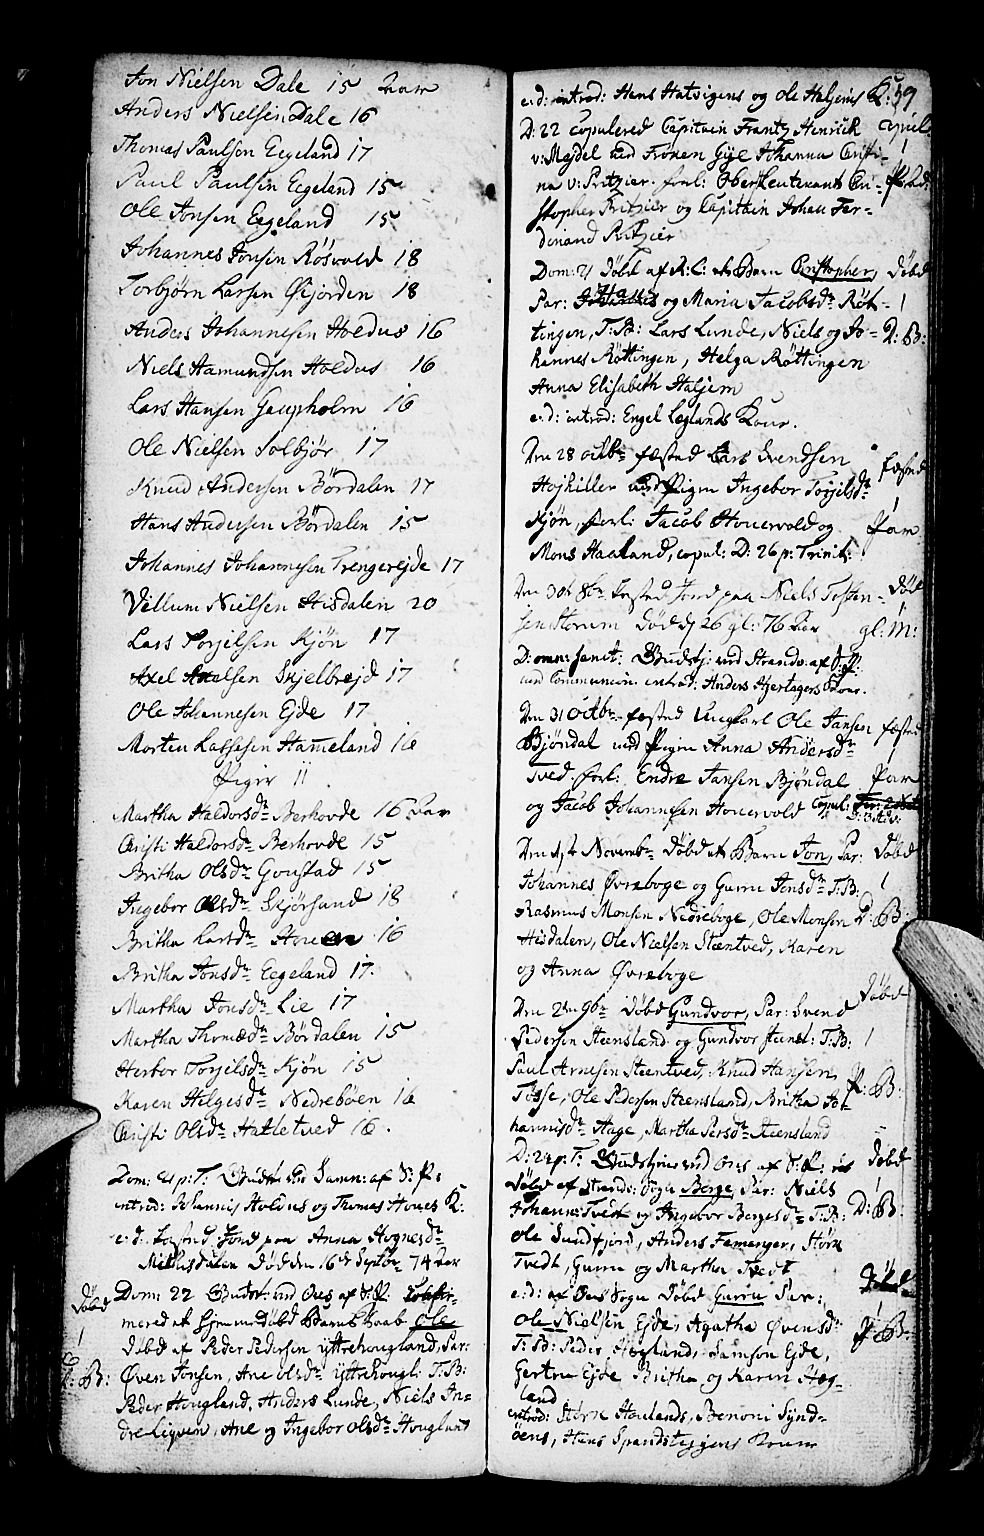 Jon Nielsen Dale 15 aar
Anders Nielsen Dale 16
Thomas Paulsen Eegeland 17
Paul Paulsen Eegeland 15
Ole Jonsen Eegeland 15
Johannes Jonsen Røsvold 18
Torbjørn Larsen Øijorden 18
Anders Johannesen Holdus 16
Niels Hamundsen Holdus 16
Lars Hansen Gaupholm 16
Ole Nielsen Solbjør 17
Knud Andersen Bördalen 17
Hans Andersen Bördalen 15
Johannes Johannesen Trengerejde 17
Villum Nielsen Hisdalen 20
Lars Torjelsen Kjön 17
Axel Axelsen Skjelbrejd 17
Ole Johannesen Ejde 17
Morten Lassesen Hammeland 16
Piger 11
Martha Haldorsdr Berhovde 16 aar
Christi Haldorsdr Berhovde 15
Britha Olsdr Goustad 15
Ingebor Olsdr Skjørsand 18
Britha Larsdr 16
Britha Jonsdr Eegeland 17.
Martha Jonsdr Lie 17
Martha Thomædr Bördalen 15
Herbor Torjelsdr Kjön 15
Karen Helgesdr Nedrebøen 16
Christi Olsdr Hatletved 16.
Dom: 21 p: T: Gudstj: ved Samn: af S: P:
introd: Johannis Holdus og Thomas Hoves K:
e: d: kasted Jord paa Anna Hognesdr
Mithisdalen Död den 16de Septbr 74 aar
Dom: 22 Gudst: ved Ous af S: P: Confir-
mered et hjemmedøbd Barn kaab Ole
döbd af Peder Pedersen yttrehougland, Par:
Øven Jonsen, Ane Olsdr yttrehougl: T: B:
Peder Hougland, Anders Lunde, Niels An-
dre Liqven, Ane og Ingebor Olsdr Houglunt
Döbd
1
B:
e: d: introd: Hans Hatvigens og Ole Haljems K: 39
D: 22 Copulered Capitain Frantz Henrich
v: Magdel med Frøken Gye Johanna Christi-
na v: Pritzier. forl: Oberstleutenant Chri-
stopher Pritzier og Capitain Johan Fer-
dinand Pritzier
copul
1
Dom: 21 Döbd af R: C: et Barn Christopher,
Par: og Maria Jacobsdr Röt-
tingen, T: B: Lars Lunde, Niels og Jo-
hannes Röttingen, Helga Röttingen
Anna Elisabeth Haljem
e: d: introd: Engel Leglands Kone.
döbd
1
D: B:
Den 28 octbr fæsted Lars Svendsen
Hojhiller med Pigen Ingebor Torjelsdr
Kjön, forl: Jacob Houervold og
Mons Haaland, copul: D: 26 p: Trinit:
fæsted
1
Par
Den 30t 8br kasted Jord paa Niels Tosten-
sen Storum Död d 26 gl: 76 aar
död
gl: M:
D: omn: Sanct: Gudstj: ved Strandv: af S: P:
med Communion. introd: Anders Hjertagers Kone.
Den 31 octbr fæsted Ungkarl Ole Jansen
Bjöndal med Pigen Anna Andersdr
Tved. forl: Endre Jansen Bjöndal
og Jacob Johannesen Houervold Copul:
fæsted
Par
Den 1st Novembr Döbd et Barn Jon, Par:
Johannes Øvreboge og Guru Jonsdr T: B:
Rasmus Monsen Nedreboge, Ole Monsen
Hisdalen, Ole Nielsen Steentved, Karen
og Anna Øvreboge
Döbd
1
D: B:
Den 2den 9br Döbd Gundvor, Par: Svend
Pedersen Steensland og Gundvor Steensl: T: B:
Paul Arnesen Steentved, Knud Hansen
Tösse, Ole Pedersen Steensland, Britha Jo-
hannisdr Hage, Martha Persdr Steensland
Döbd
1
P: B:
D: 24 p: T: Gudstjen: ved Ous af S: P:
Döbd af Strands: Sogn Berge, Par: Niels
Johann: Tvedt og Ingebor Bergesdr T: B:
Ole Sundfjord, Anders Femanger, Störk
Tvedt, Guru og Martha Tvedt
Döbd
1
D: B:
e: d: af Ous Sogn Döbd Guru Par:
Ole Nielsen Ejde, Agatha Øvensdr
T: B: Peder Hougland, Samson Ejde,
Gertru Ejde Britha og Karen Hog-
land
Döbd
1
P: B:
introd: Störk Hovlands, Benoni Synd-
öens, Hans Strandstegens Koner